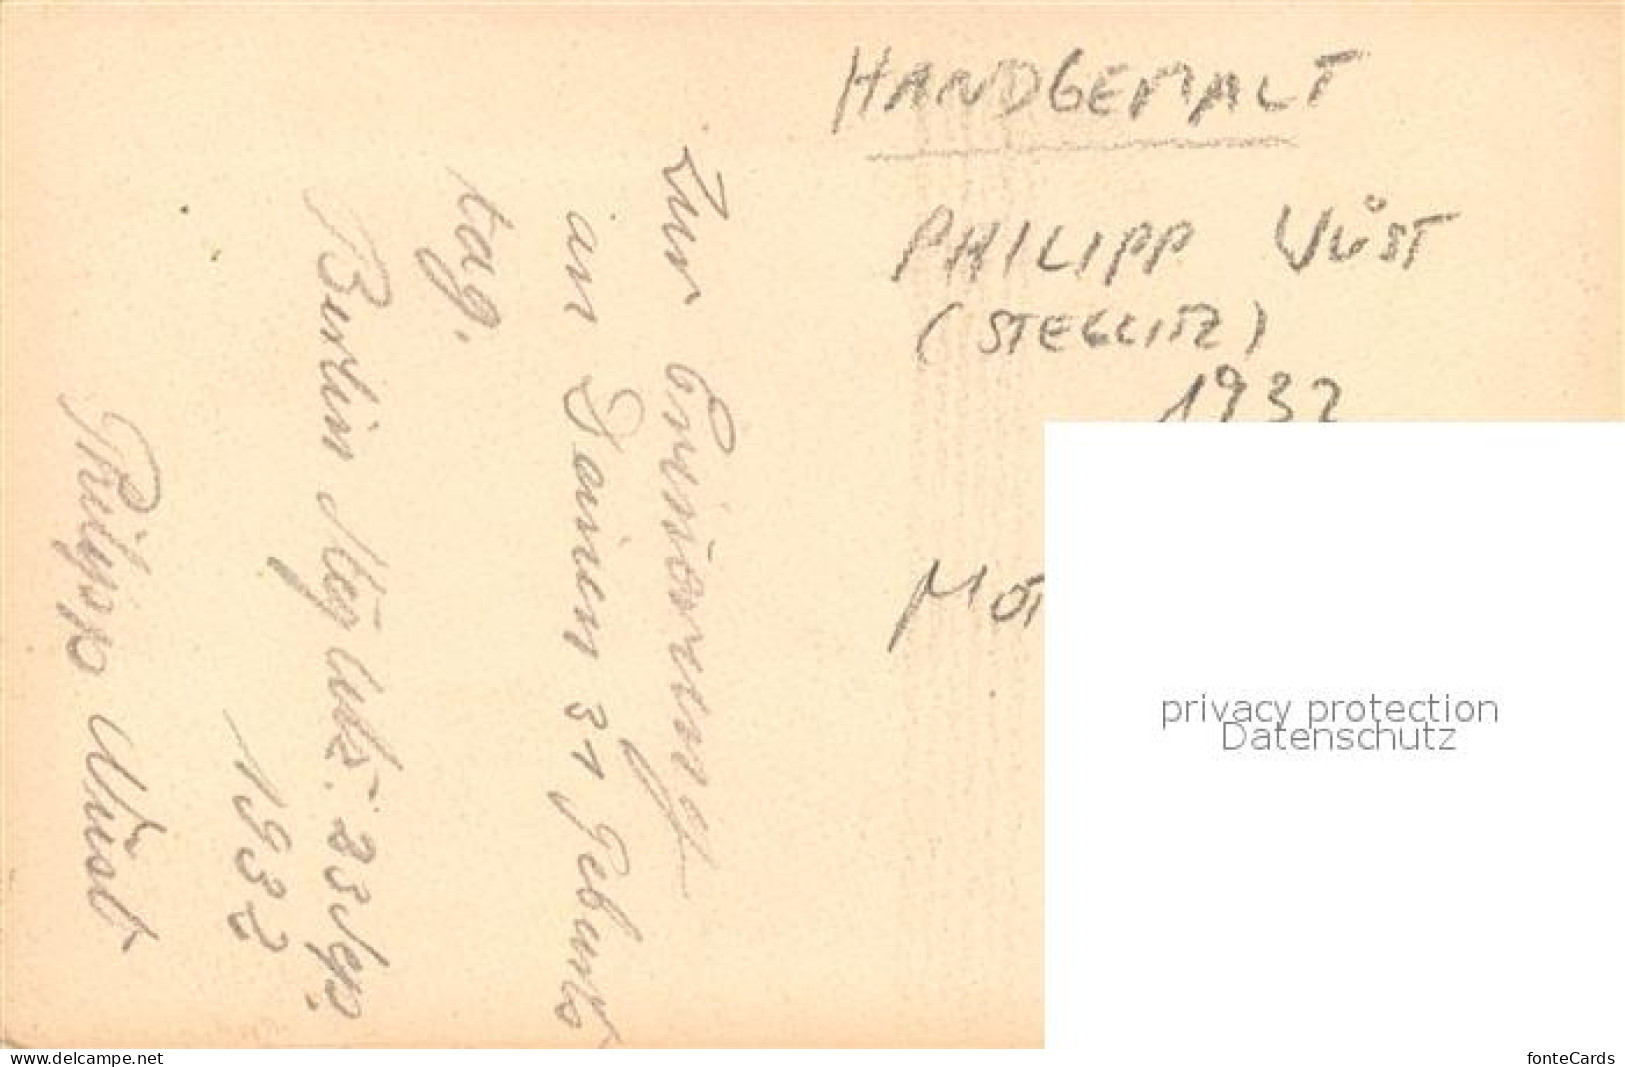 HANDGEMALT
PHILIPP WÜST
(STEGLITZ)
1932
MOT
Zur Erinnerung
an Deinen 31 Geburts
tag.
Berlin 23 Sep.
1932
Philipp Wüst
privacy protection
Datenschutz
www.delcampe.net
fonteCards